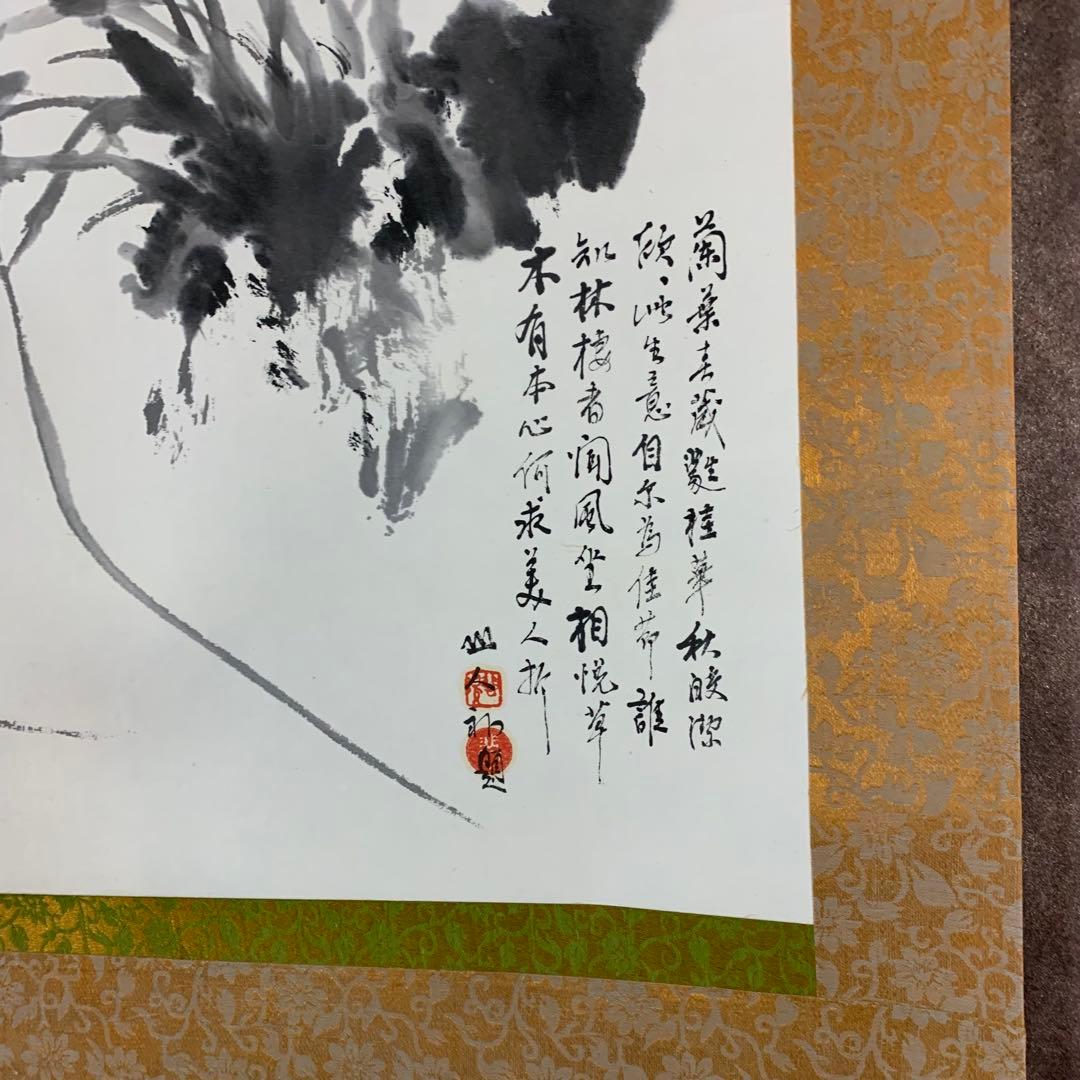 蘭葉春葳蕤桂華秋皎潔
欣々此生意自尓為佳節誰
知林棲者聞風坐相悦草
木有本心何求美人折
山人題